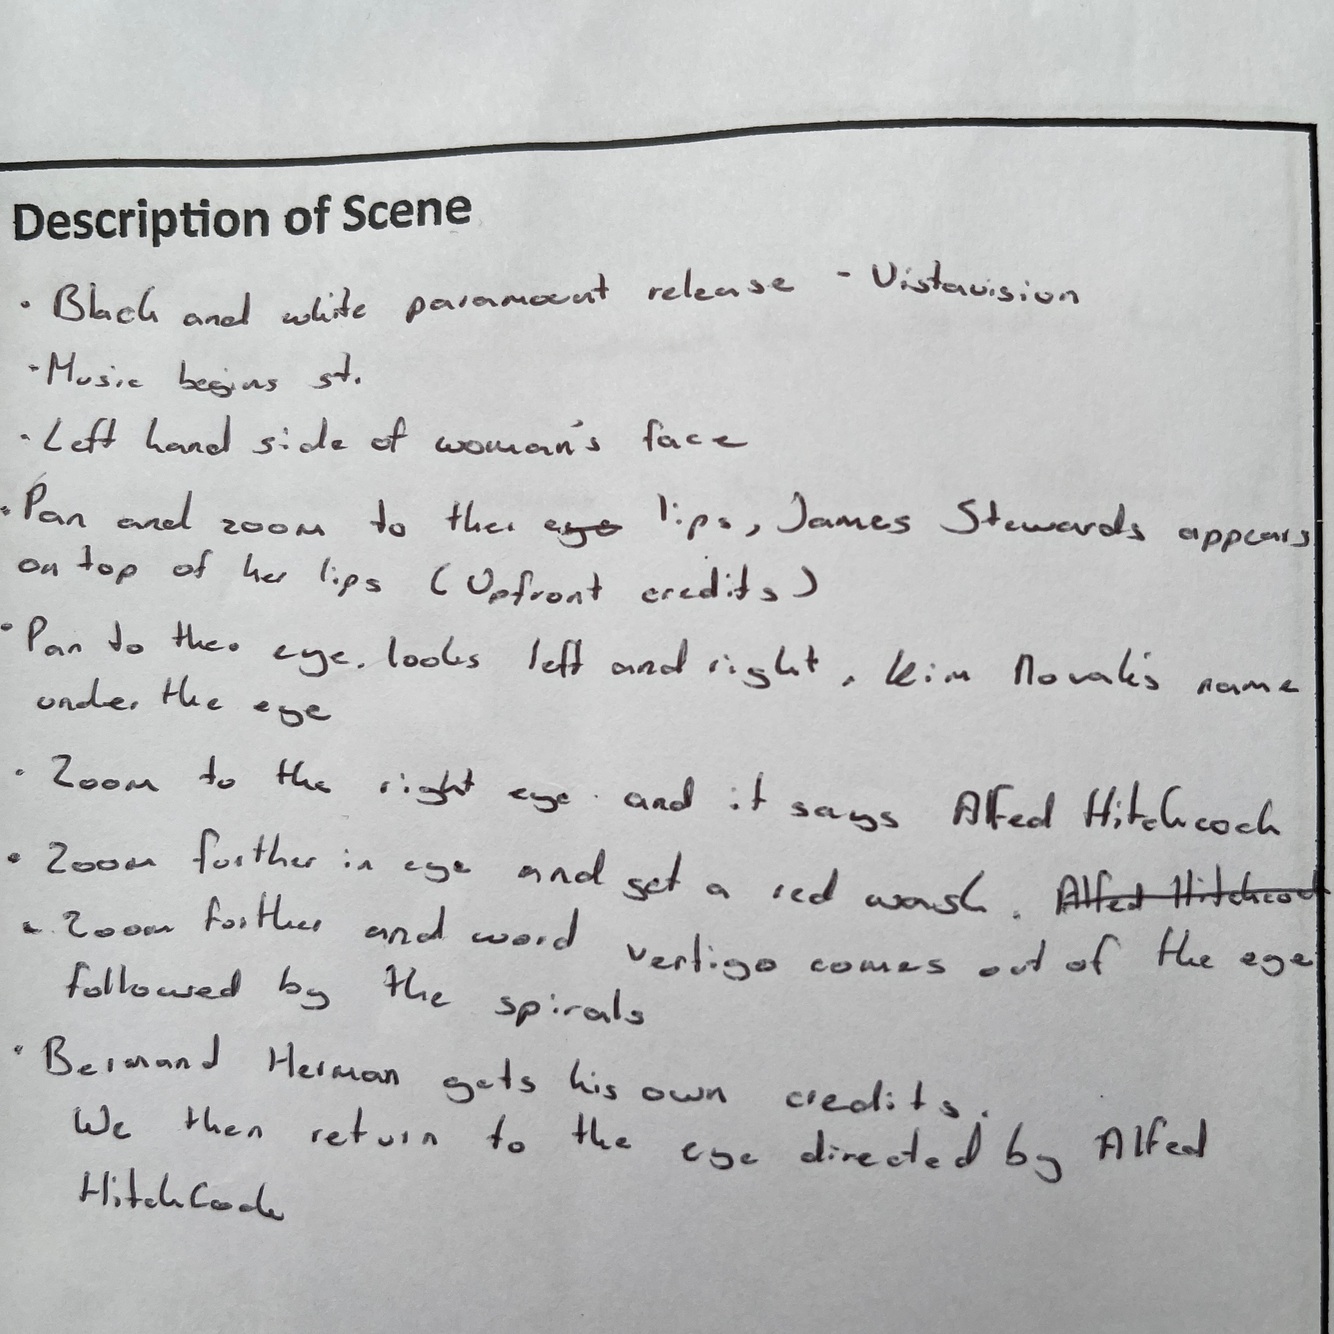 Description of Scene
· Black and white paramount release - Vistavision
· Music begins st.
· Left hand side of woman's face
· Pan and zoom to ther eye lips, James Stewards appears
on top of her lips (Upfront credits)
· Pan to ther eye. looks left and right, Kim Novak's name
under the eye
· Zoom to the right eye and it says Alfed Hitchcock
· Zoom further in eye and get a red wash. Alfed Hitchcock
· Zoom further and word vertigo comes out of the eye
followed by the spirals
· Bernand Herman gets his own credits.
We then return to the eye directed by Alfed
HitchCock